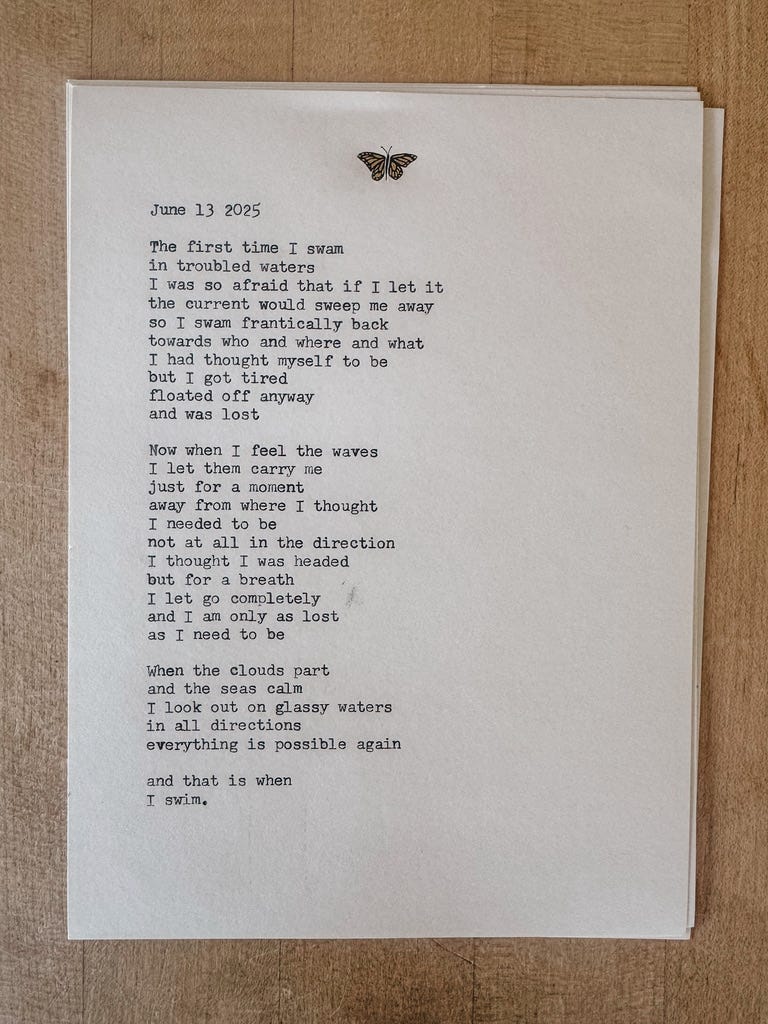 June 13 2025
The first time I swam
in troubled waters
I was so afraid that if I let it
the current would sweep me away
so I swam frantically back
towards who and where and what
I had thought myself to be
but I got tired
floated off anyway
and was lost
Now when I feel the waves
I let them carry me
just for a moment
away from where I thought
I needed to be
not at all in the direction
I thought I was headed
but for a breath
I let go completely
and I am only as lost
as I need to be
When the clouds part
and the seas calm
I look out on glassy waters
in all directions
everything is possible again
and that is when
I swim.